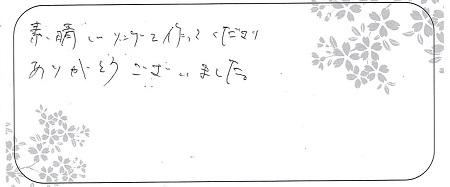 素晴しいリングを作ってくださり
ありがとうございました。